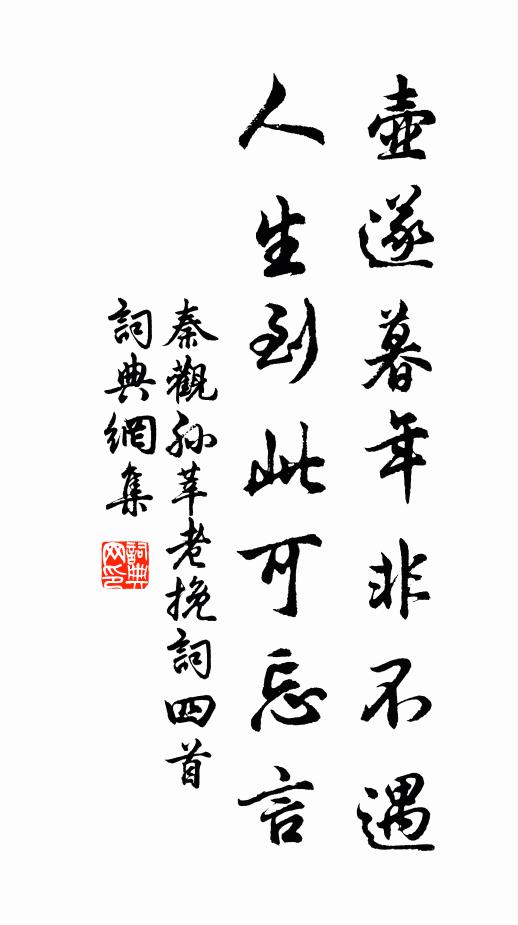 壺遂暮年非不遇
人生到此可忘言
秦觀孫莘老挽詞四首
詞典網集
詞典網印